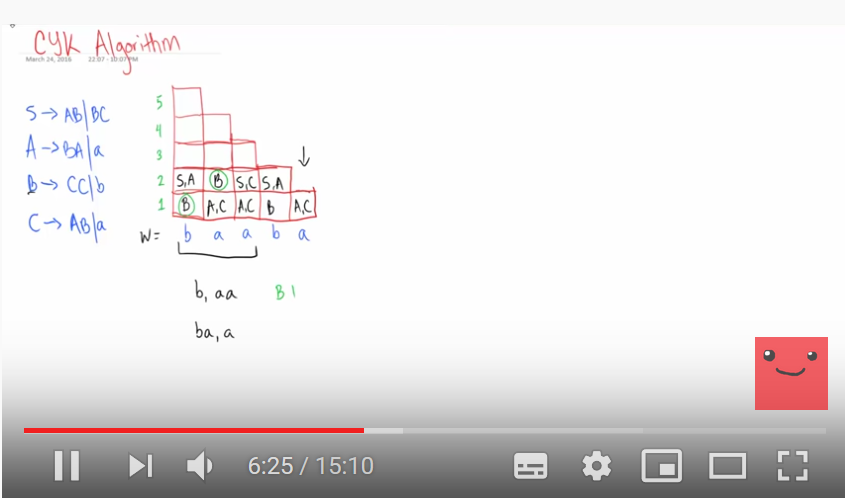 CYK Algorithm
March 24, 2016 22:07 - 10:07 PM
S→AB|BC
A→BA|a
B→CC|b
C→AB|a
5
4
3
2 S,A B S,C S,A
1 B A,C A,C B A,C
W= b a a b a
b, aa B
ba, a
6:25 / 15:10